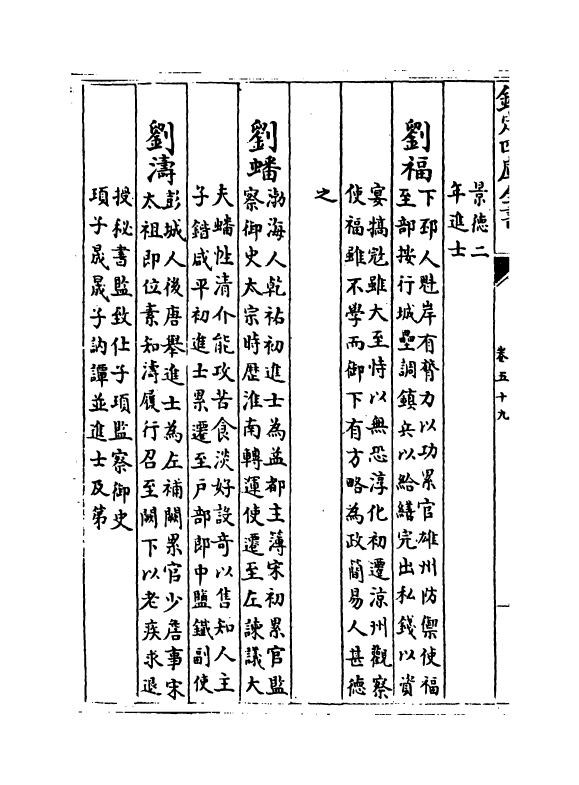 欽定四庫全書
卷五十九
一
景德二
年進士
劉福
下邳人魁岸有膂力以功累官雄州防禦使福
至部按行城壘調鎮兵以給繕完出私錢以賞
宴犒寇雖大至恃以無恐淳化初遷涼州觀察
使福雖不學而御下有方略為政簡易人甚德
之
劉蟠
渤海人乾祐初進士為益都主簿宋初累官監
察御史太宗時歴淮南轉運使遷至左諫議大
夫蟠性清介能攻苦食淡好設奇以售知人主
子鍇咸平初進士累遷至戸部郎中鹽鐵副使
劉濤
彭城人後唐舉進士為左補闕累官少詹事宋
太祖即位素知濤履行召至闕下以老疾求退
授秘書監致仕子頊監察御史
頊子晟晟子訥譚並進士及第